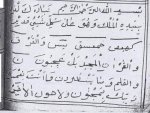 بسم الله الرحمن الرحيم تبارك الذي
بيده الملك وهو على كل شيء قدير
كهيعص حمعسق يس
والقرآن المجيد ن
والقلم وما يسطرون ما انت بنعمة
ربك بمجنون ولا حول